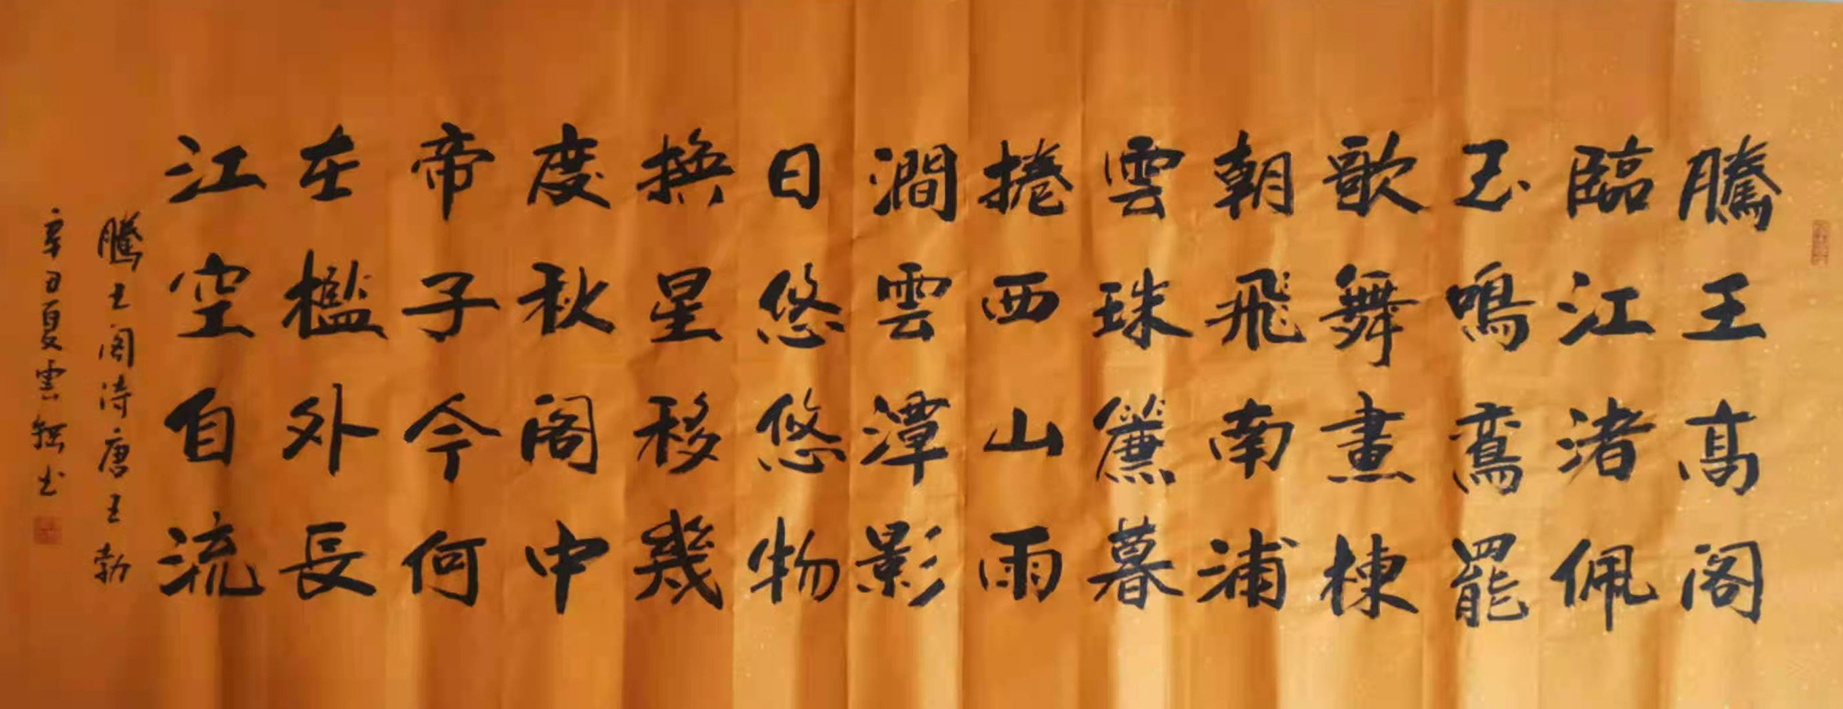 騰王高阁
臨江渚佩
玉鳴鸞罷
歌舞畫棟
朝飛南浦
雲珠簾暮
捲西山雨
澗雲潭影
日悠悠物
換星移幾
度秋阁中
帝子今何
在檻外長
江空自流
騰王阁诗唐王勃
辛丑夏雲书